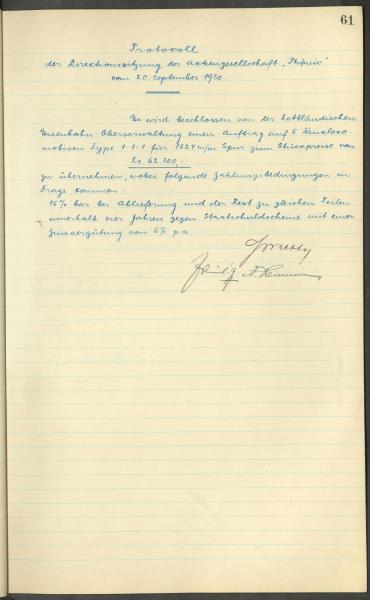 61
Protokoll
der Direktionssitzung der Aktiengesellschaft „Phönix"
vom 20. September 1930.
Es wird beschlossen von der Lettländischen
Eisenbahn-Oberverwaltung einen Auftrag auf 5 Tankloko-
motiven Type 1-1-1 für 1524 m/m Spur zum Stückpreise von
Ls. 62.300,-
zu übernehmen, wobei folgende Zahlungsbedingungen in
Frage kommen:
15% bar bei Ablieferung und der Rest zu gleichen Teilen
innerhalb vier Jahren gegen Staatsschuldscheine mit einer
Zinsvergütung von 6% pa